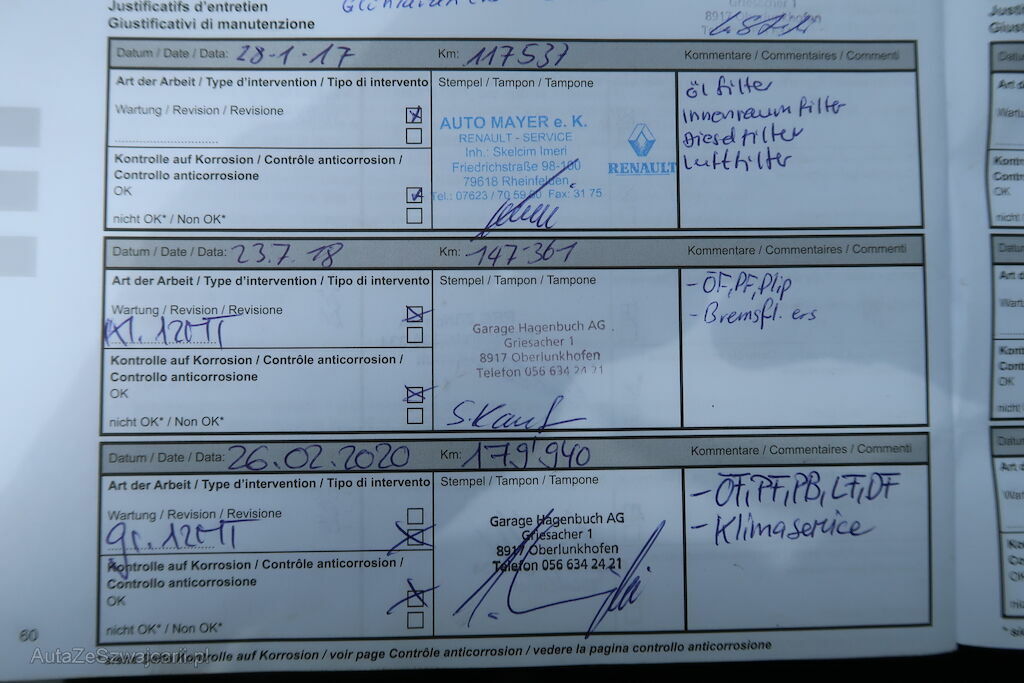 Justificatifs d'entretien
Giustificativi di manutenzione
Griesacher 1
8917 Oberlunkhofen
Datum / Date / Data: 28-1-17 Km: 117537 Kommentare / Commentaires / Commenti
Art der Arbeit / Type d'intervention / Tipo di intervento
Wartung / Revision / Revisione
Kontrolle auf Korrosion / Contrôle anticorrosion /
Controllo anticorrosione
OK
nicht OK* / Non OK*
Stempel / Tampon / Tampone
AUTO MAYER e. K.
RENAULT - SERVICE
Inh.: Skelcim Imeri
Friedrichstraße 98-100
79618 Rheinfelden
Tel.: 07623 / 70 59 Fax: 31 75
RENAULT
öl filter
Innenraum filter
Diesel filter
Luftfilter
Datum / Date / Data: 23.7.18 Km: 147'361 Kommentare / Commentaires / Commenti
Art der Arbeit / Type d'intervention / Tipo di intervento
Wartung / Revision / Revisione
Kl. 120TT
Kontrolle auf Korrosion / Contrôle anticorrosion /
Controllo anticorrosione
OK
nicht OK* / Non OK*
Stempel / Tampon / Tampone
Garage Hagenbuch AG
Griesacher 1
8917 Oberlunkhofen
Telefon 056 634 24 21
- ÖF, PF,
- Bremsfl. ers
Datum / Date / Data: 26.02.2020 Km: 179'940 Kommentare / Commentaires / Commenti
Art der Arbeit / Type d'intervention / Tipo di intervento
Wartung / Revision / Revisione
gr. 120TT
Kontrolle auf Korrosion / Contrôle anticorrosion /
Controllo anticorrosione
OK
nicht OK* / Non OK*
Stempel / Tampon / Tampone
Garage Hagenbuch AG
Griesacher 1
8917 Oberlunkhofen
Telefon 056 634 24 21
- ÖF, PF, PB, LF, DF
- Klimaservice
60
AutaZeSzwajcarii.pl
Kontrolle auf Korrosion / voir page Contrôle anticorrosion / vedere la pagina controllo anticorrosione